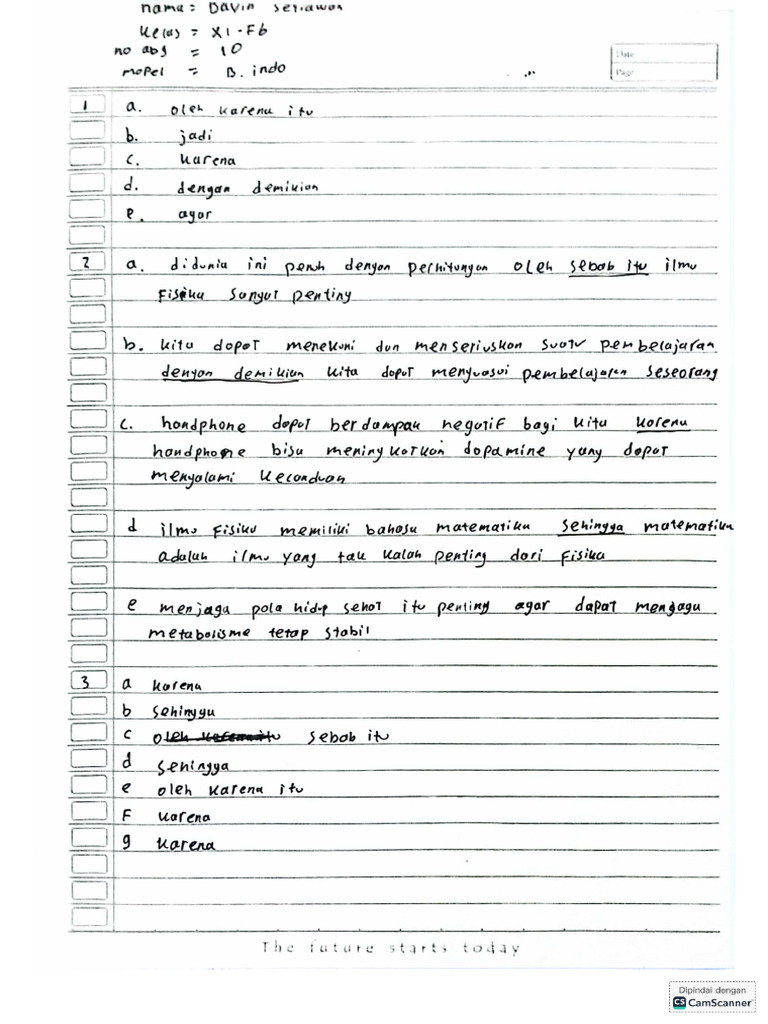 nama = Davin Setiawan
Kelas = XI-F6
no abs = 10
mapel = B. indo
Date
Page
1 a. oleh karena itu
b. jadi
c. karena
d. dengan demikian
e. agar
2 a. didunia ini penuh dengan perhitungan oleh sebab itu ilmu
fisika sangat penting
b. kita dapat menekuni dan menseriuskan suatu pembelajaran
dengan demikian kita dapat menguasai pembelajaran seseorang
c. handphone dapat berdampak negatif bagi kita karena
handphone bisa meningkatkan dopamine yang dapat
mengalami kecanduan
d ilmu fisika memiliki bahasa matematika sehingga matematika
adalah ilmu yang tak kalah penting dari fisika
e menjaga pola hidup sehat itu penting agar dapat menjaga
metabolisme tetap stabil
3 a karena
b sehingga
c sebab itu
d sehingga
e oleh karena itu
F karena
g karena
The future starts today
Dipindai dengan
CS CamScanner